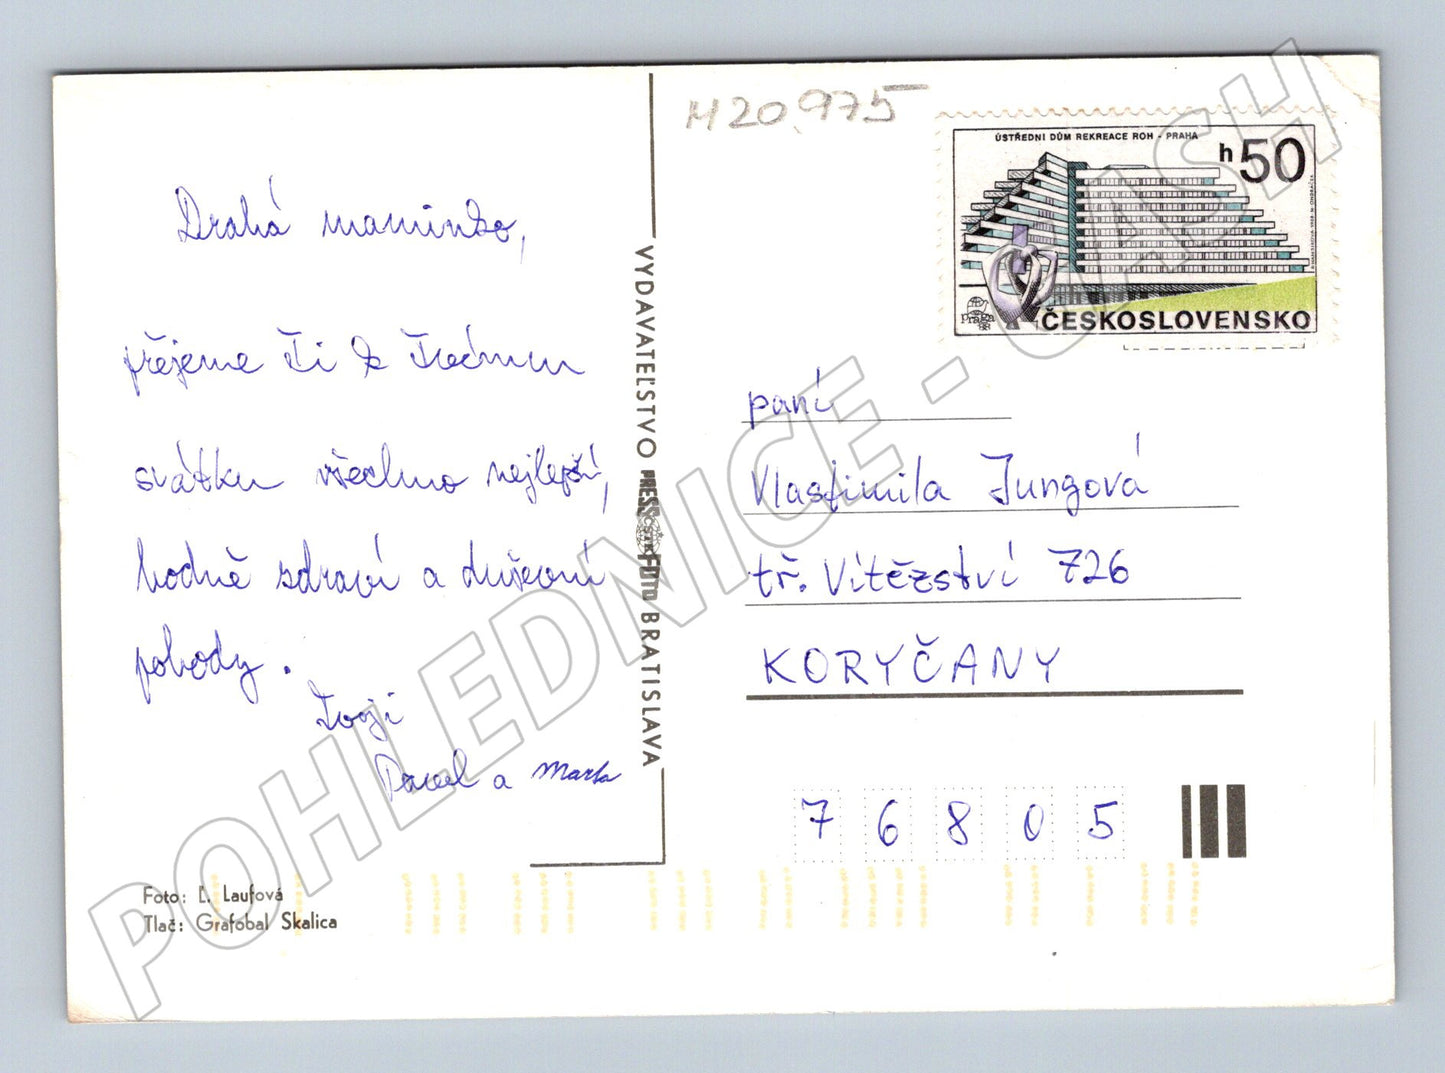 H20.975
ÚSTŘEDNI DŮM REKREACE ROH - PRAHA
h50
praga 88
ČESKOSLOVENSKO
Drahá maminko,
přejeme Ti k Tvému
svátku všechno nejlepší,
hodně zdraví a duševní
pohody.
Tvoji
Pavel a Marta
VYDAVATEĽSTVO PRESSFOTO BRATISLAVA
ČSTK
paní
Vlastimila Jungová
tř. Vítězství 726
KORYČANY
76805
Foto: D. Laufová
Tlač: Grafobal Skalica
POHLEDNICE - CASH